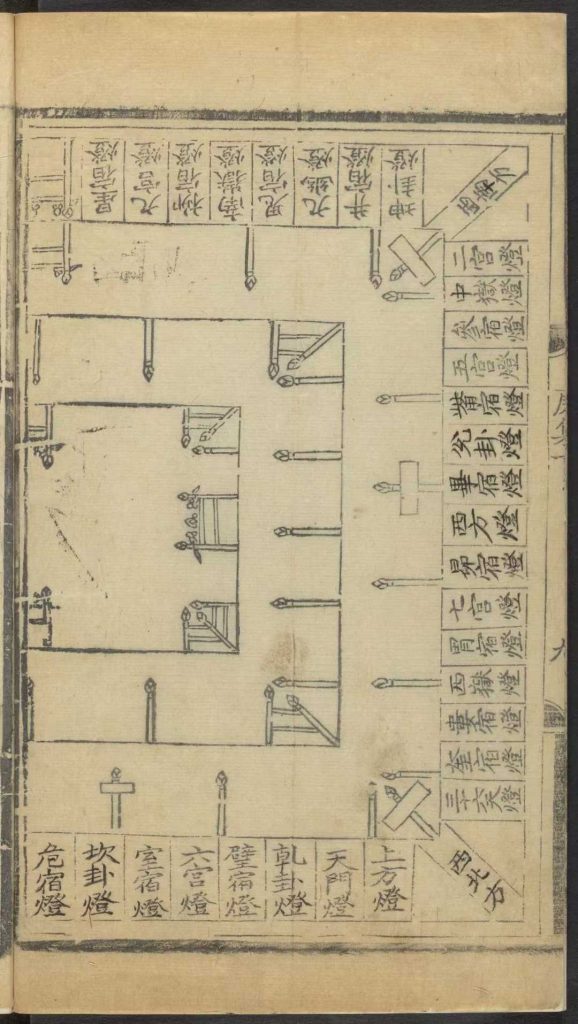 西南方
坤卦燈
井宿燈
鬼宿燈
南嶽燈
柳宿燈
九宮燈
星宿燈
二宮燈
中嶽燈
參宿燈
五宮燈
觜宿燈
兌卦燈
畢宿燈
西方燈
昴宿燈
七宮燈
胃宿燈
西嶽燈
婁宿燈
奎宿燈
三十六天燈
西北方
上方燈
天門燈
乾卦燈
壁宿燈
六宮燈
室宿燈
坎卦燈
危宿燈